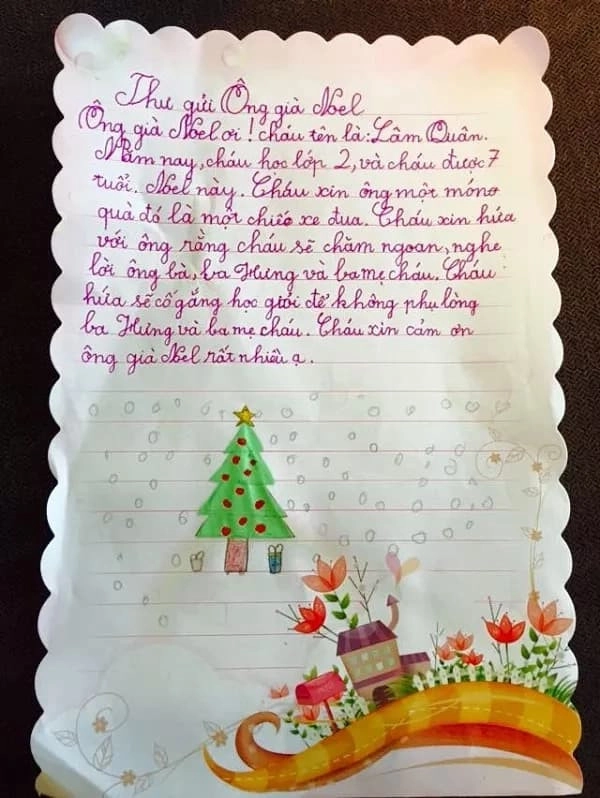 Thư gửi Ông già Noel
Ông già Noel ơi! cháu tên là: Lâm Quân.
Năm nay, cháu học lớp 2, và cháu được 7
tuổi. Noel này. Cháu xin ông một món
quà đó là một chiếc xe đua. Cháu xin hứa
với ông rằng cháu sẽ chăm ngoan, nghe
lời ông bà, ba Hưng và ba mẹ cháu. Cháu
hứa sẽ cố gắng học giỏi để không phụ lòng
ba Hưng và ba mẹ cháu. Cháu xin cảm ơn
ông già Noel rất nhiều ạ.